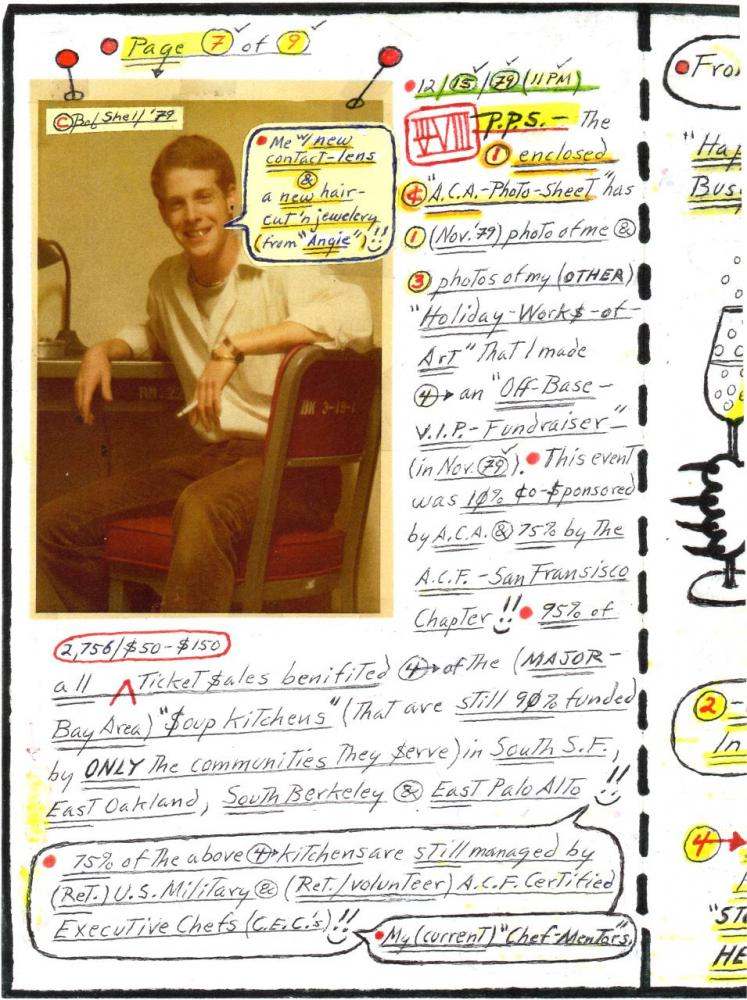 Page 7 of 9
© Bob Shell / '79
Me w/ new
contact-lens
&
a new hair-
cut 'n jewelery
(from "Angie") !!
12/15/79 (11 PM)
P.P.S. - The
1 enclosed
"A.C.A.-Photo-Sheet" has
1 (Nov. 79) photo of me &
3 photos of my (OTHER)
"Holiday-Work$-of-
Art" that I made
4 an "Off-Base-
V.I.P.-Fundraiser"
(in Nov. 79). This event
was 10% ¢o-$ponsored
by A.C.A. & 75% by the
A.C.F. - San Fransisco
Chapter !! 95% of
2,756/$50-$150
all ^ Ticket $ales benifited 4 of the (MAJOR-
Bay Area) "$oup kitchens" (that are still 90% funded
by ONLY the communities they $erve) in South S.F.,
East Oakland, South Berkeley & East Palo Alto !!
75% of the above 4 kitchens are still managed by
(Ret.) U.S. Military & (Ret./volunteer) A.C.F. Certified
Executive Chefs (C.E.C.'s) !!
My (current) "Chef-Mentors"
Fro
"Hap
Bus
2 -
In
4
"ST
HE